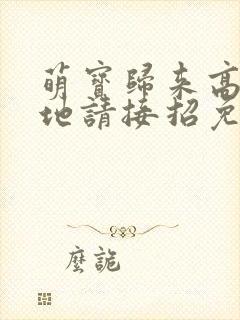 萌寶歸來高
地請接招免
麼詭